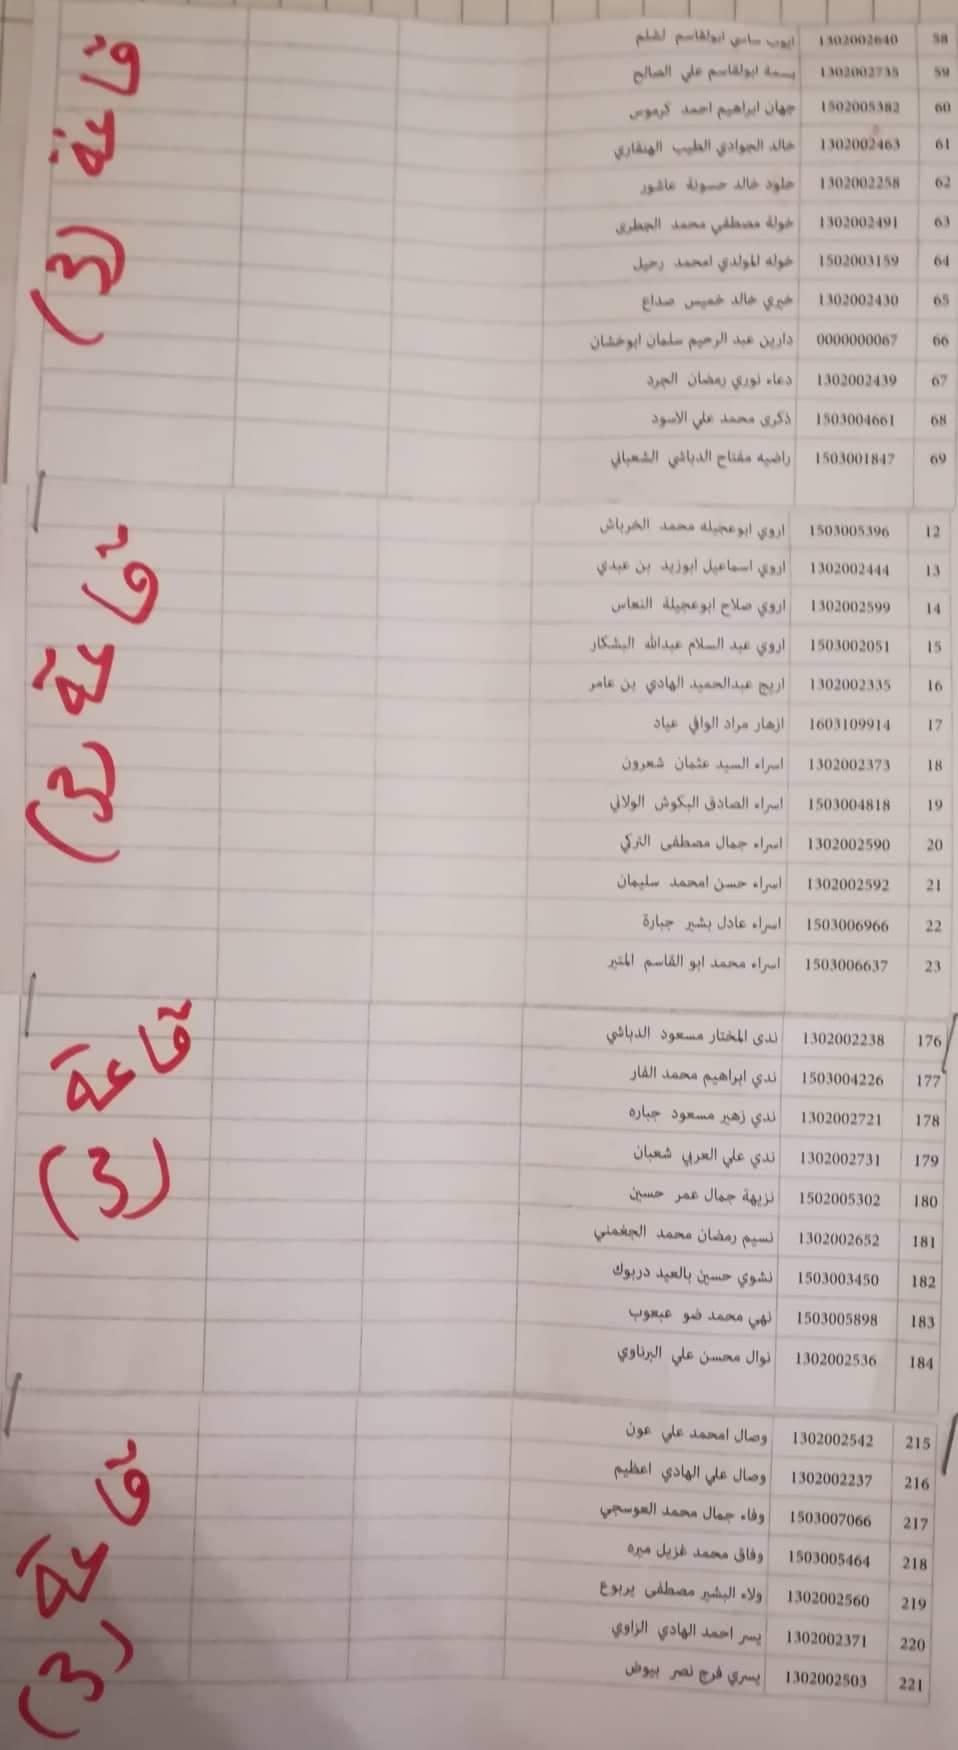 58 1302002640 ايوب ساسي ابولقاسم لشلم
59 1302002735 بسمة ابولقاسم علي الصالح
60 1502005382 جهان ابراهيم احمد كرموس
61 1302002463 خالد الجوادي الطيب الهنقاري
62 1302002258 خلود خالد حسونة عاشور
63 1302002491 خولة مصطفي محمد الجطري
64 1502003159 خوله المولدي امحمد رحيل
65 1302002430 خيري خالد خميس صداع
66 0000000067 دارين عبد الرحيم سلمان ابوخشان
67 1302002439 دعاء نوري رمضان الجرد
68 1503004661 ذكرى محمد علي الاسود
69 1503001847 راضيه مفتاح الدباشي الشعباني
قاعة (3)
12 1503005396 اروي ابوعجيله محمد الخرباش
13 1302002444 اروي اسماعيل ابوزيد بن عبدي
14 1302002599 اروي صلاح ابوعجيلة النعاس
15 1503002051 اروي عبد السلام عبدالله البشكار
16 1302002335 اريج عبدالحميد الهادي بن عامر
17 1603109914 ازهار مراد الوافي عياد
18 1302002373 اسراء السيد عثمان شعرون
19 1503004818 اسراء الصادق البكوش الولاني
20 1302002590 اسراء جمال مصطفى التركي
21 1302002592 اسراء حسن امحمد سليمان
22 1503006966 اسراء عادل بشير جبارة
23 1503006637 اسراء محمد ابو القاسم المتير
قاعة (3)
176 1302002238 ندى المختار مسعود الدباشي
177 1503004226 ندي ابراهيم محمد الفار
178 1302002721 ندي زهير مسعود جباره
179 1302002731 ندي علي العربي شعبان
180 1502005302 نزيهة جمال عمر حسين
181 1302002652 نسيم رمضان محمد الجغمني
182 1503003450 نشوي حسين بالعيد دربوك
183 1503005898 نهي محمد ضو عبعوب
184 1302002536 نوال محسن علي البرناوي
قاعة (3)
215 1302002542 وصال امحمد علي عون
216 1302002237 وصال علي الهادي اعظيم
217 1503007066 وفاء جمال محمد العوسجي
218 1503005464 وفاق محمد غزيل ميره
219 1302002560 ولاء البشير مصطفى يربوع
220 1302002371 يسر احمد الهادي الزاوي
221 1302002503 يسري فرج نصر بيوض
قاعة (3)